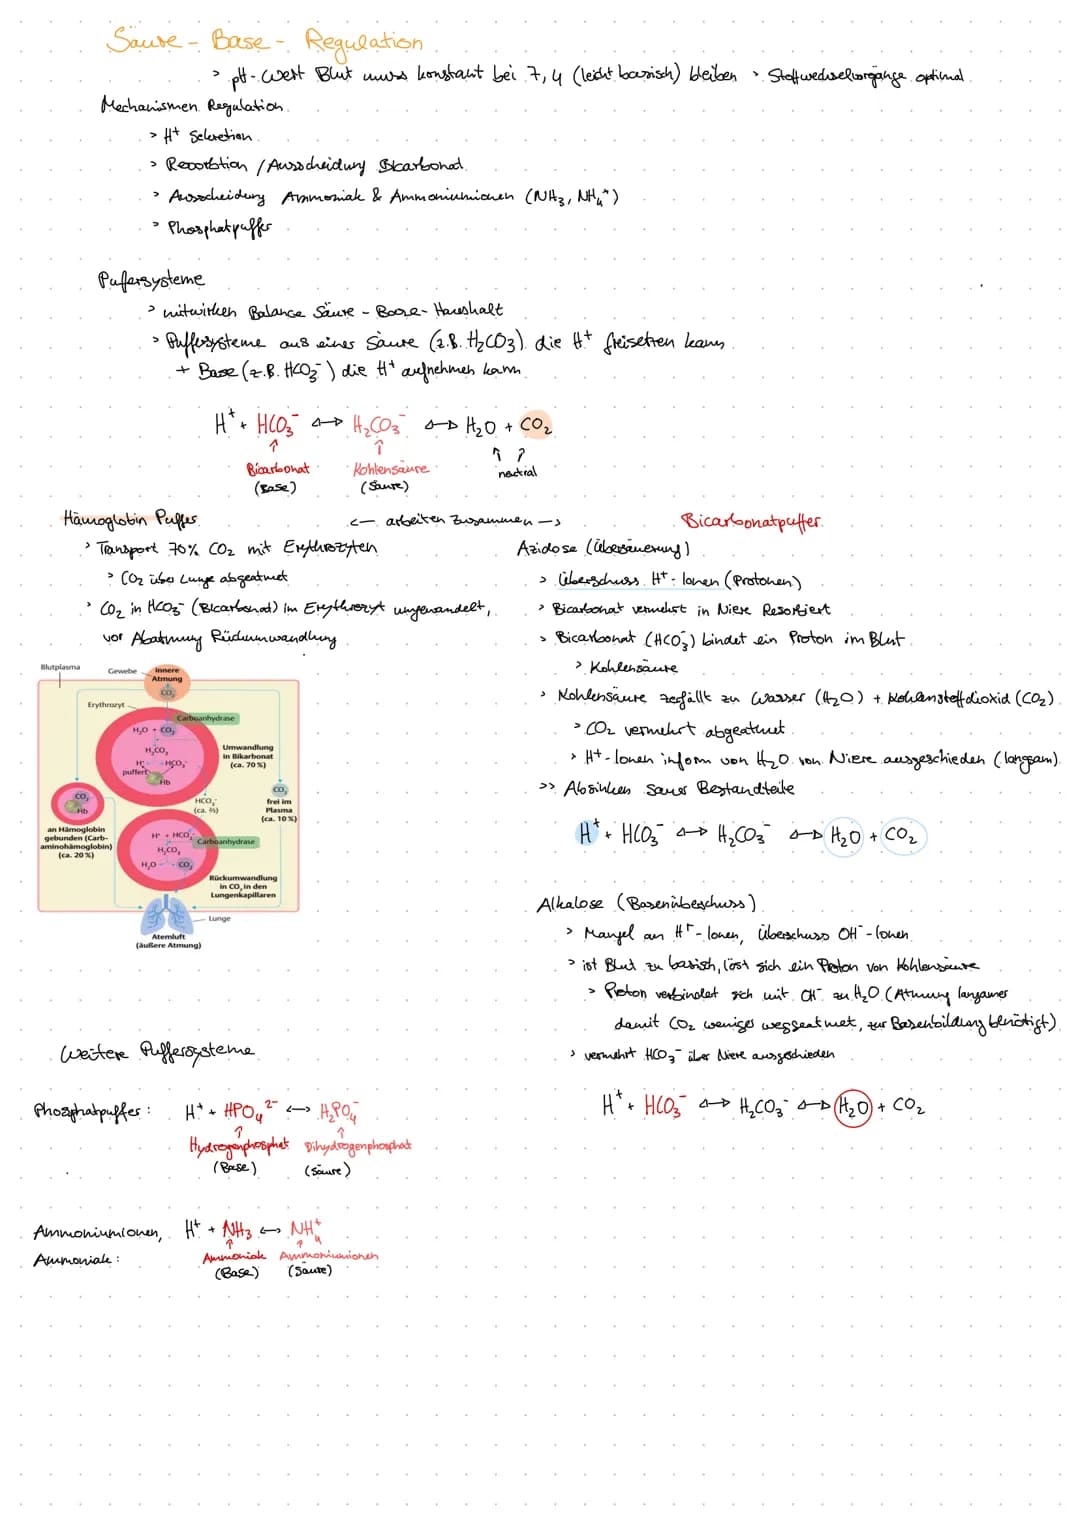 Säure - Base - Regulation
> pH-Wert Blut muss konstant bei 7,4 (leicht basisch) bleiben > Stoffwechselvorgänge optimal
Mechanismen Regulation
> H⁺ Sekretion
> Resorbtion / Ausscheidung Bicarbonat
> Ausscheidung Ammoniak & Ammoniumionen (NH₃, NH₄⁺)
> Phosphatpuffer
Puffersysteme
> mitwirken Balance Säure - Base - Haushalt
> Puffersysteme aus einer Säure (z.B. H₂CO₃) die H⁺ freisetzen kann
+ Base (z.B. HCO₃⁻) die H⁺ aufnehmen kann
H⁺ + HCO₃⁻ ↔ H₂CO₃⁻ ↔ H₂O + CO₂
↑ ↑ ↑ ↑
Bicarbonat Kohlensäure neutral
(Base) (Säure)
Hämoglobin Puffer <— arbeiten zusammen —> Bicarbonatpuffer
> Transport 70% CO₂ mit Erythrozyten
> CO₂ über Lunge abgeatmet
> CO₂ in HCO₃⁻ (Bicarbonat) im Erythrozyt umgewandelt,
vor Abatmung Rückumwandlung
Blutplasma
Gewebe
innere
Atmung
CO₂
Erythrozyt
Carboanhydrase
H₂O + CO₂
H₂CO₃
H⁺ HCO₃⁻
puffert
Hb
Umwandlung
in Bikarbonat
(ca. 70%)
CO₂
Hb
HCO₃⁻
(ca. ⅔)
CO₂
frei im
Plasma
(ca. 10%)
an Hämoglobin
gebunden (Carb-
aminohämoglobin)
(ca. 20%)
H⁺ + HCO₃⁻
Carboanhydrase
H₂CO₃
H₂O CO₂
Rückumwandlung
in CO₂ in den
Lungenkapillaren
Lunge
Atemluft
(äußere Atmung)
Azidose (Übersäuerung)
> Überschuss H⁺-Ionen (Protonen)
> Bicarbonat vermehrt in Niere Resorbiert
> Bicarbonat (HCO₃⁻) bindet ein Proton im Blut
> Kohlensäure
> Kohlensäure zerfällt zu Wasser (H₂O) + Kohlenstoffdioxid (CO₂)
> CO₂ vermehrt abgeatmet
> H⁺-Ionen inform von H₂O von Niere ausgeschieden (langsam)
>> Absinken saurer Bestandteile
H⁺ + HCO₃⁻ ↔ H₂CO₃⁻ ↔ H₂O + CO₂
Alkalose (Basenüberschuss)
> Mangel an H⁺-Ionen, Überschuss OH⁻-Ionen
> ist Blut zu basisch, löst sich ein Proton von Kohlensäure
> Proton verbindet sich mit OH⁻ zu H₂O (Atmung langsamer
damit CO₂ weniger weggeatmet, zur Basenbildung benötigt)
> vermehrt HCO₃⁻ über Niere ausgeschieden
H⁺ + HCO₃⁻ ↔ H₂CO₃⁻ ↔ H₂O + CO₂
Weitere Puffersysteme
Phosphatpuffer: H⁺ + HPO₄²⁻ ↔ H₂PO₄⁻
↑ ↑
Hydrogenphosphat Dihydrogenphosphat
(Base) (Säure)
Ammoniumionen, H⁺ + NH₃ ↔ NH₄⁺
↑ ↑
Ammoniak: Ammoniak Ammoniumionen
(Base) (Säure)